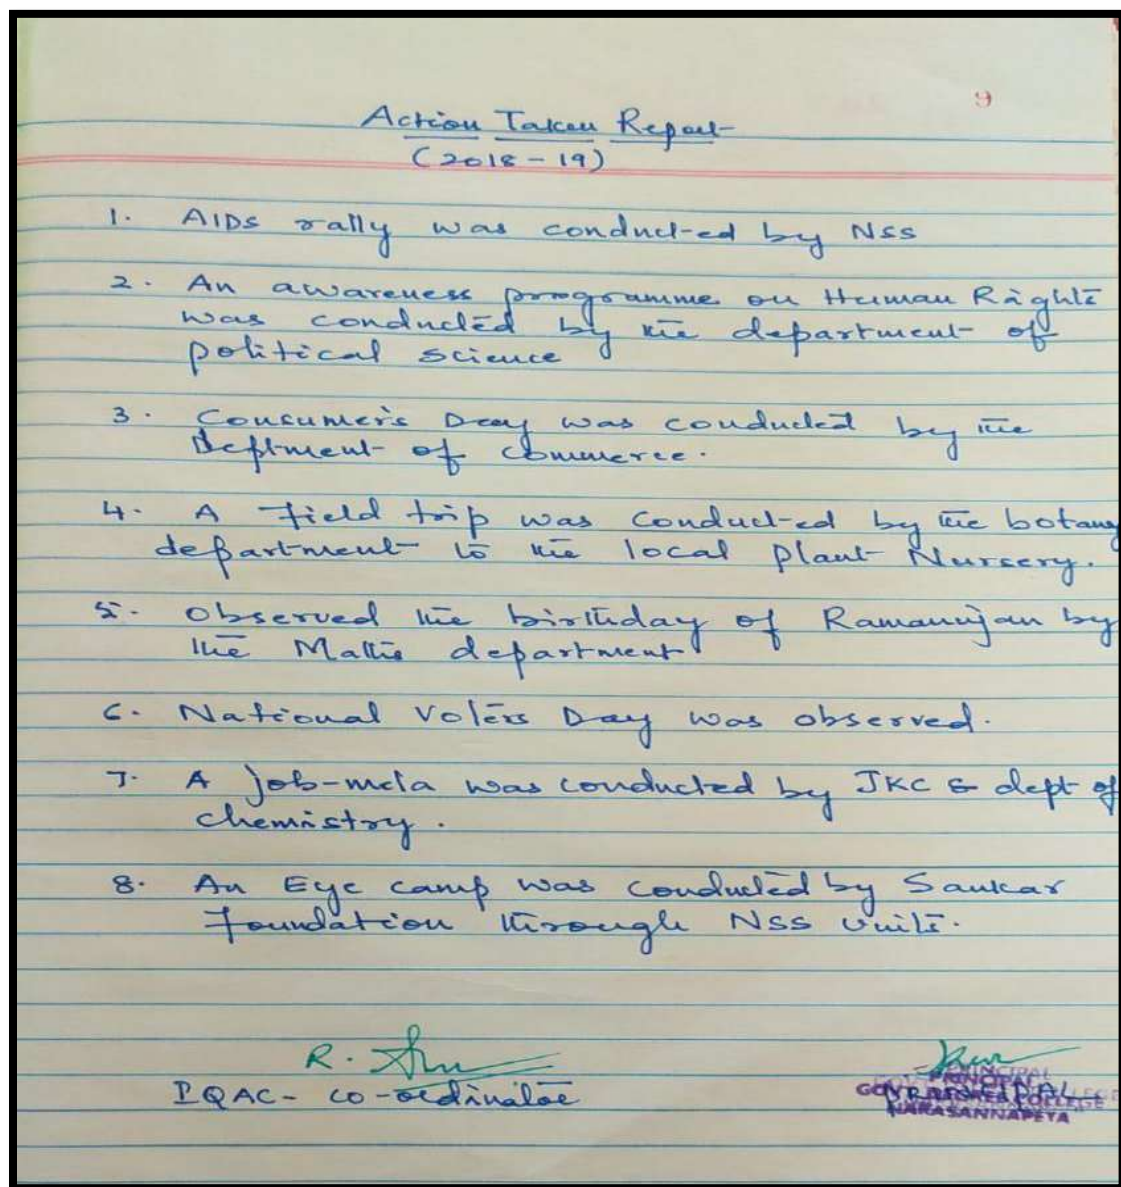 9
Action Taken Report
(2018-19)
1. AIDs rally was conducted by NSS
2. An awareness programme on Human Rights
was conducted by the department of
political science
3. Consumer's Day was conducted by the
Deptment of Commerce.
4. A field trip was conducted by the botany
department to the local plant Nursery.
5. Observed the birthday of Ramanujan by
the Maths department
6. National Voters Day was observed.
7. A job-mela was conducted by JKC & dept of
chemistry.
8. An Eye camp was conducted by Sankar
foundation through NSS units.
R.
IQAC- co-ordinator
PRINCIPAL
PRINCIPAL
GOVT. DEGREE COLLEGE
NARASANNAPETA